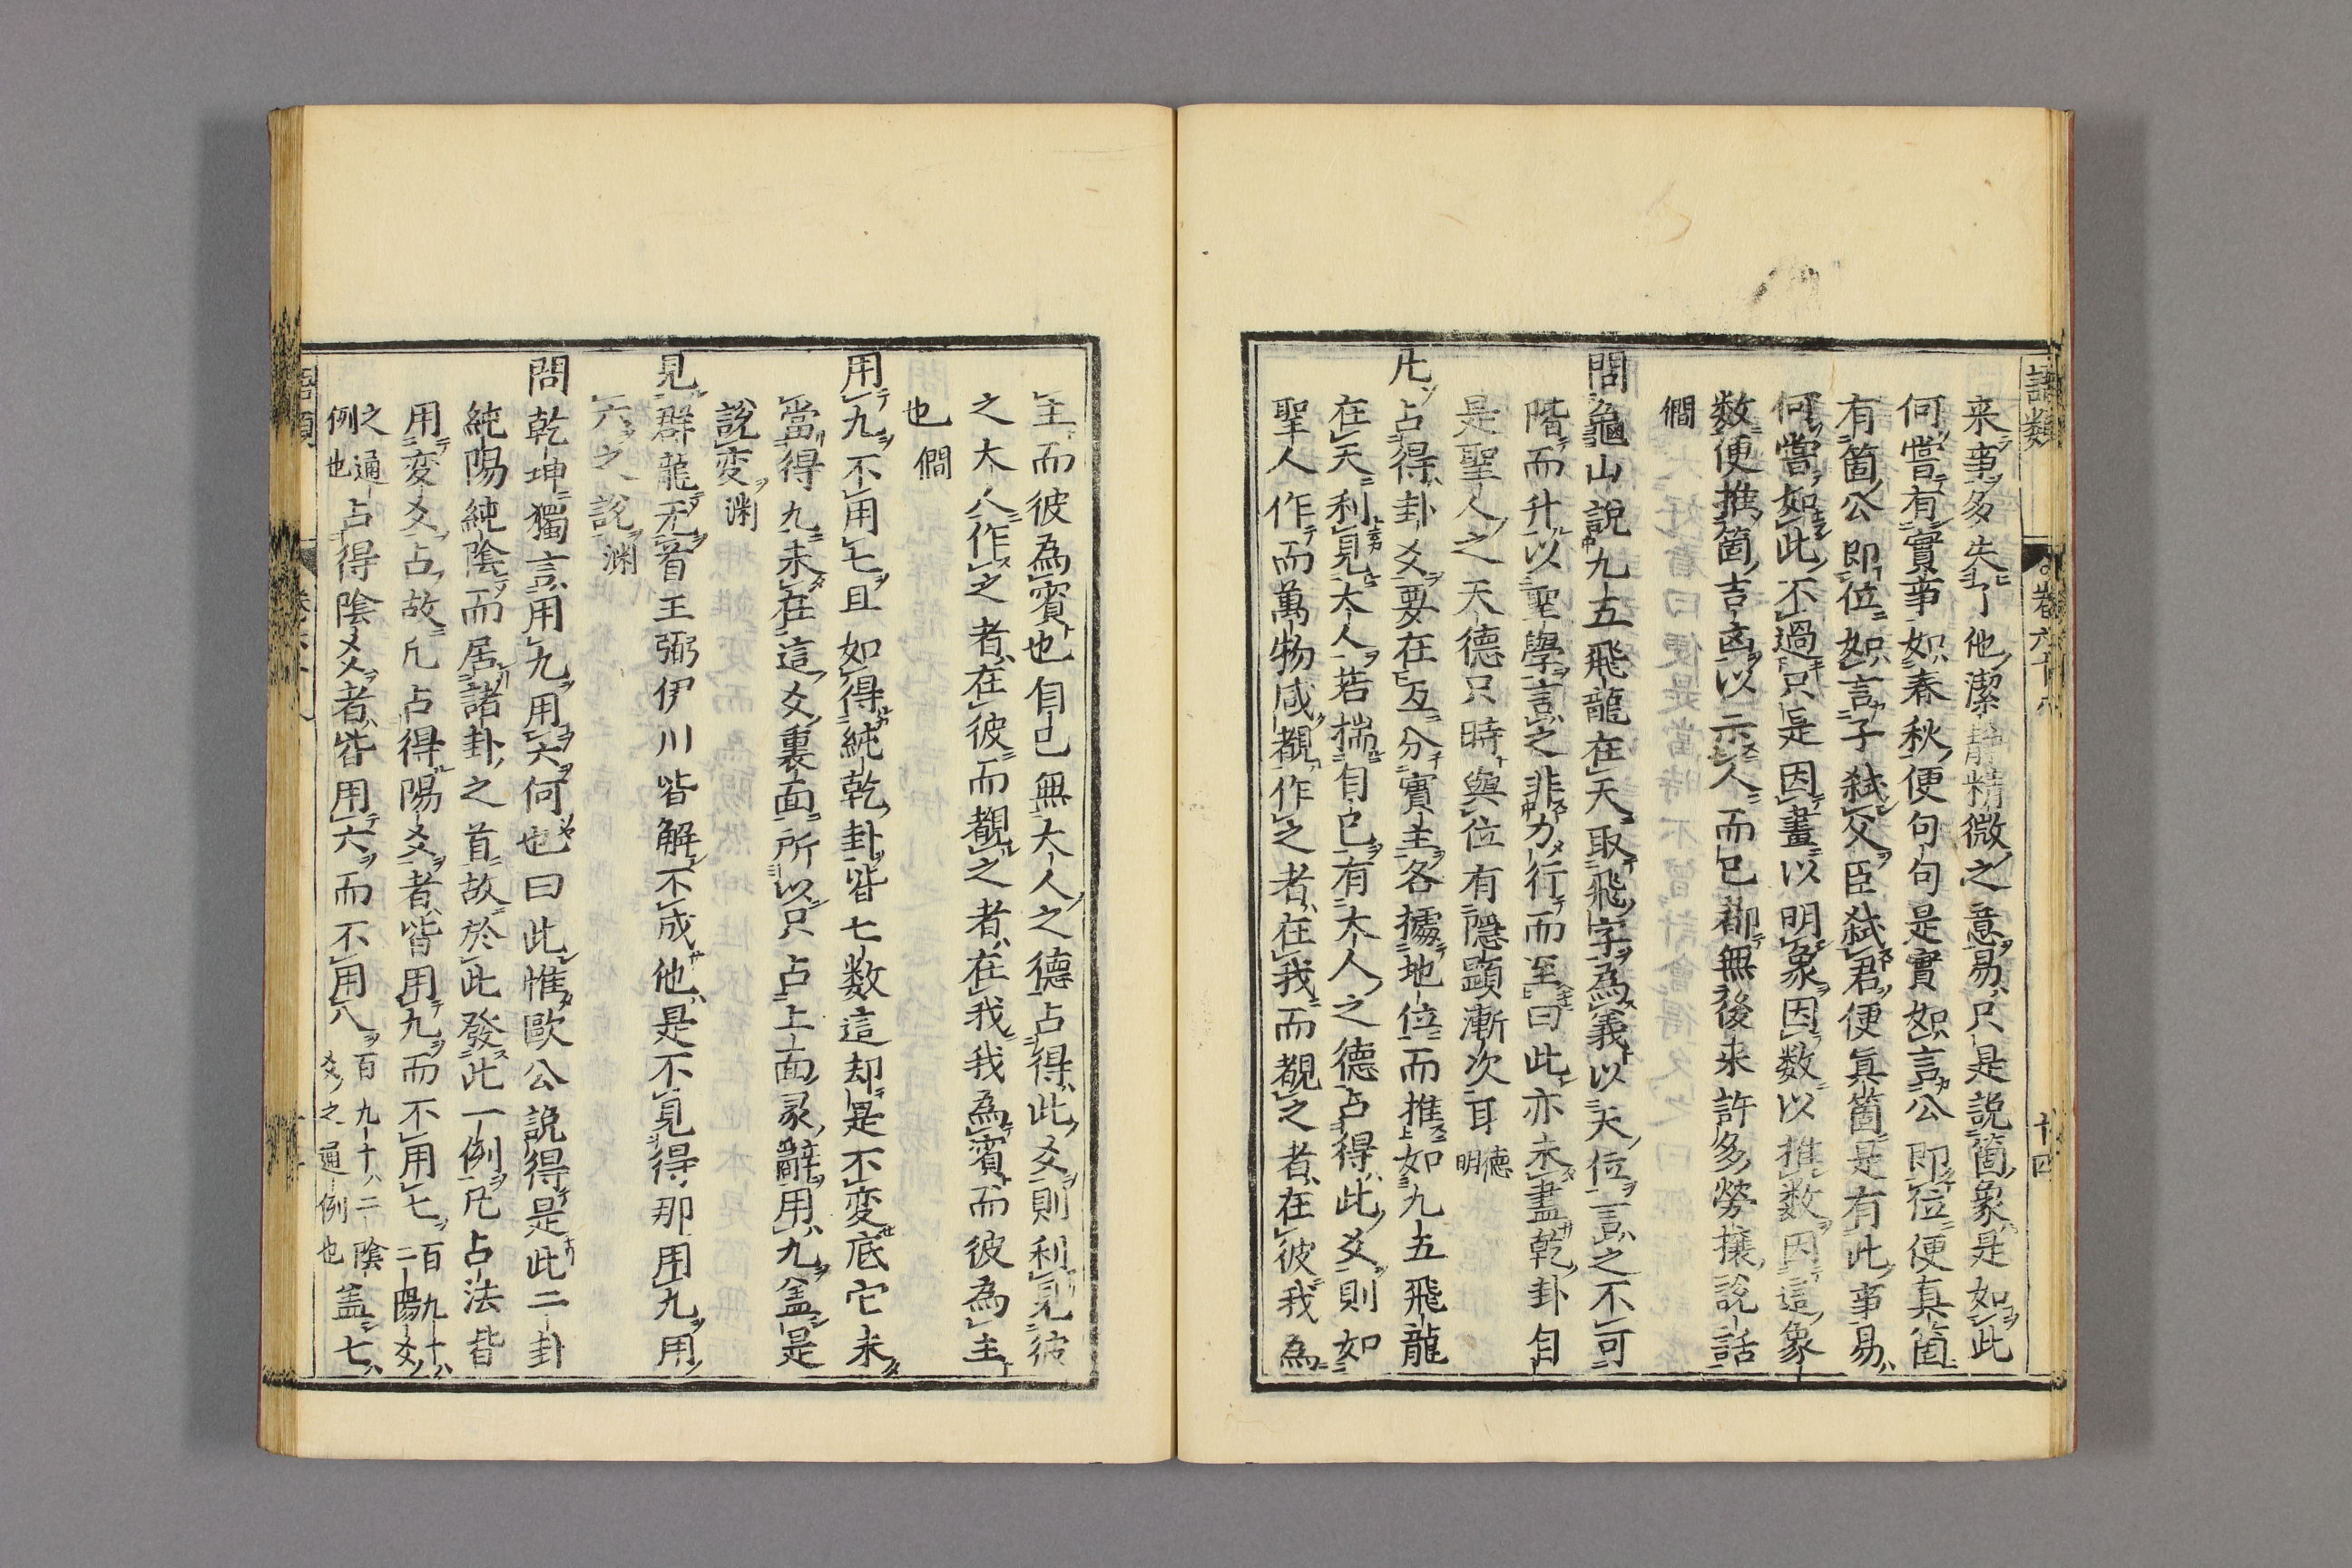 語類
卷六十八
十四
来事多失了他潔靜精微之意易只是說箇象是如此
何嘗有實事如春秋便句句是實如言公即位便真箇
有箇公即位如言子弒父臣弒君便真箇是有此事易
何嘗如此不過只是因畫以明象因数以推数因這象
数便推箇吉凶以示人而已都無後来許多勞攘說話
僩
問龜山說九五飛龍在天取飛字為義以天位言之不可
階而升以聖學言之非力行而至曰此亦未盡乾卦自
是聖人之天德只時與位有隱顯漸次耳 德明
凡占得卦爻要在互分賓主各據地位而推如九五飛龍
在天利見大人若揣自已有大人之德占得此爻則如
聖人作而萬物咸覩作之者在我而覩之者在彼我為
主而彼為賓也自已無大人之德占得此爻則利見彼
之大人作之者在彼而覩之者在我我為賓而彼為主
也 僩
用九不用七且如得純乾卦皆七数這却是不変底它未
當得九未在這爻裏面所以只占上面彖辭用九盖是
說変 渊
見群龍无首王弼伊川皆解不成他是不見得那用九用
六之說 渊
問乾坤獨言用九用六何也曰此惟歐公說得是此二卦
純陽純陰而居諸卦之首故於此發此一例凡占法皆
用変爻占故凡占得陽爻者皆用九而不用七 百九十二陽爻
之通例也 占得陰爻者皆用六而不用八 百九十二陰爻之通例也 盖七